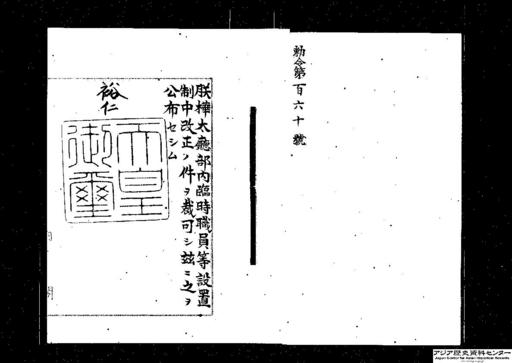 勅令第百六十號
朕樺太廳部內臨時職員等設置
制中改正ノ件ヲ裁可シ玆ニ之ヲ
公布セシム
裕仁
天皇御璽
アジア歴史資料センター
Japan Center for Asian Historical Records